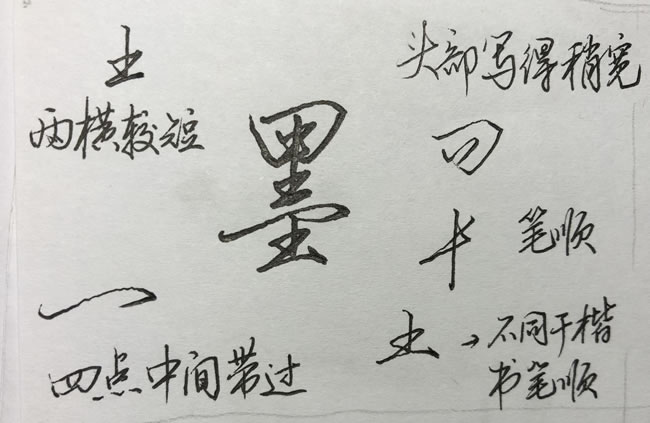 土
两横较短
墨
头部写得稍宽
笔顺
一
四点中间带过
土→不同于楷
书笔顺